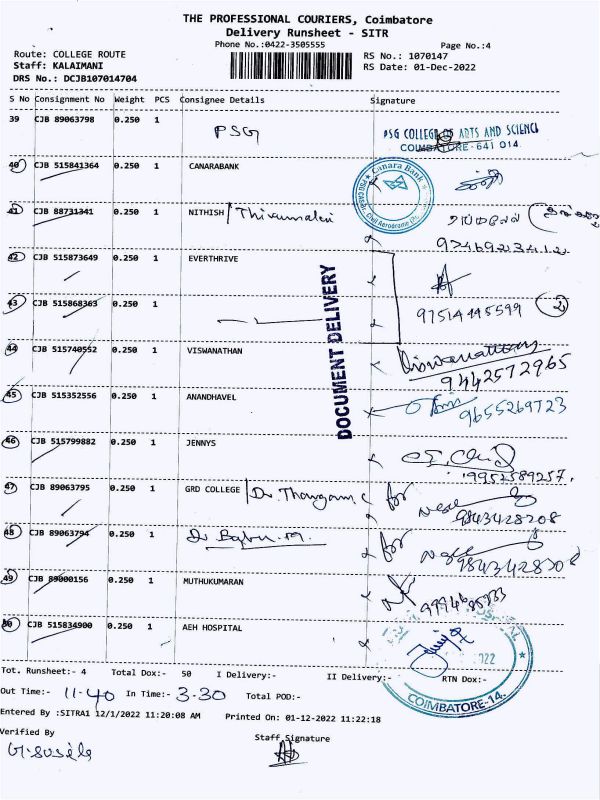 THE PROFESSIONAL COURIERS, Coimbatore
Delivery Runsheet - SITR
Phone No.:0422-3505555 Page No.:4
Route: COLLEGE ROUTE RS No.: 1070147
Staff: KALAIMANI RS Date: 01-Dec-2022
DRS No.: DCJB107014704
S No Consignment No Weight PCS Consignee Details Signature
39 CJB 89063798 0.250 1 PSG PSG COLLEGE OF ARTS AND SCIENCE
COIMBATORE-641 014.
40 CJB 515841364 0.250 1 CANARABANK Canara Bank
41 CJB 88731341 0.250 1 NITHISH / Thirumalai
9746921341
42 CJB 515873649 0.250 1 EVERTHRIVE
43 CJB 515868363 0.250 1 97514445599 2
DOCUMENT DELIVERY
44 CJB 515740552 0.250 1 VISWANATHAN Viswanathan
9442572965
45 CJB 515352556 0.250 1 ANANDHAVEL
9655269723
46 CJB 515799882 0.250 1 JENNYS
9952589257
47 CJB 89063795 0.250 1 GRD COLLEGE / Dr Thangam for
9843428208
48 CJB 89063794 0.250 1 Dr Babu.M. for
9843428208
49 CJB 89000156 0.250 1 MUTHUKUMARAN
50 CJB 515834900 0.250 1 AEH HOSPITAL
2022
COIMBATORE-14.
Tot. Runsheet:- 4 Total Dox:- 50 I Delivery:- II Delivery:- RTN Dox:-
Out Time:- 11-40 In Time:- 3-30 Total POD:-
Entered By :SITRA1 12/1/2022 11:20:08 AM Printed On: 01-12-2022 11:22:18
Verified By Staff Signature